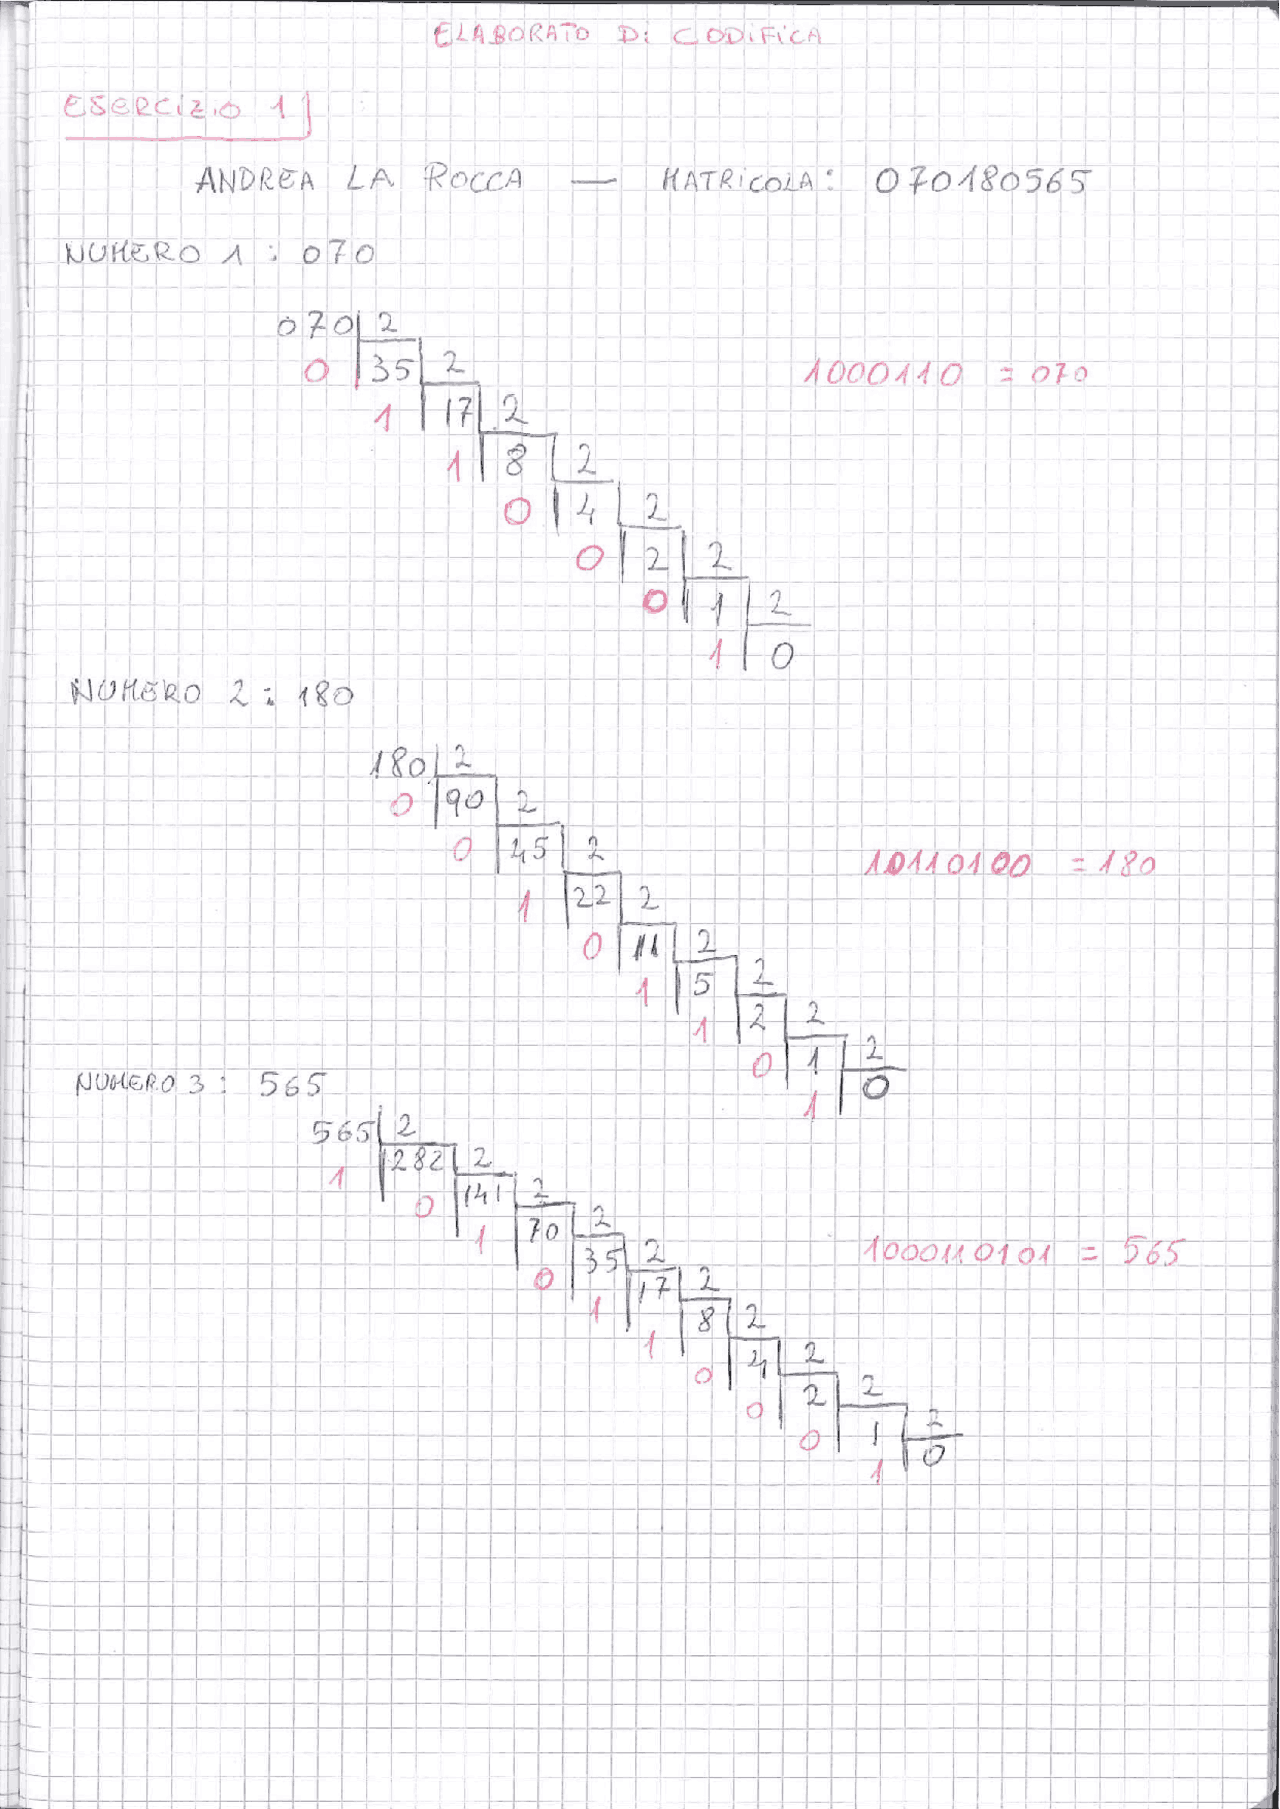 ELABORATO Di CODiFiCA
ESERCiZiO 1
ANDREA LA ROCCA — MATRiCOLA: 070180565
NUMERO 1 : 070
070 2
0 35 2
1000110 = 070
1 17 2
1 8 2
0 4 2
0 2 2
0 1 2
1 0
NUMERO 2 : 180
180 2
0 90 2
0 45 2
10110100 = 180
1 22 2
0 11 2
1 5 2
1 2 2
0 1 2
1 0
NUMERO 3 : 565
565 2
1 282 2
0 141 2
1 70 2
1000110101 = 565
0 35 2
1 17 2
1 8 2
0 4 2
0 2 2
0 1 2
1 0